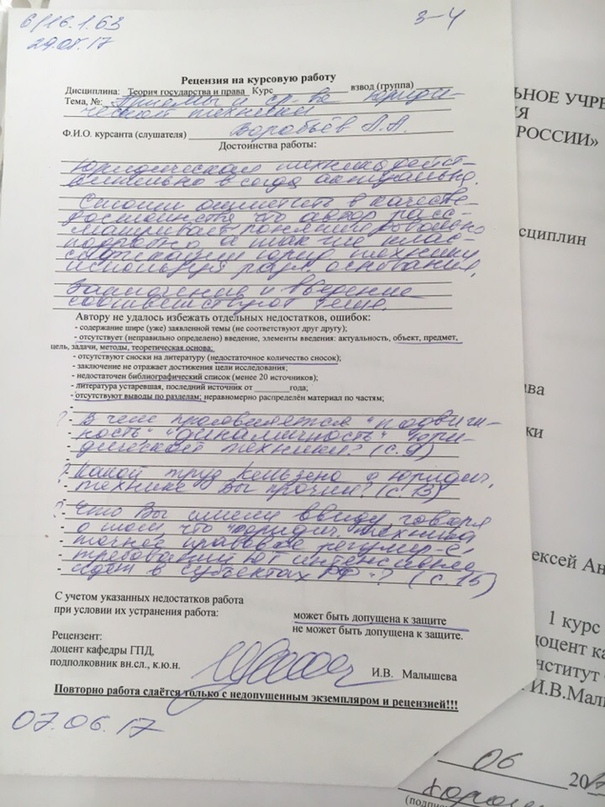 6/16.1.63
29.05.17
3-4
Рецензия на курсовую работу
Дисциплина: Теория государства и права Курс взвод (группа)
Тема, №: Приемы и ср-ва юриди-
ческой техники
Ф.И.О. курсанта (слушателя) Воробьёв А.А.
Достоинства работы:
Юридическая техника дейст-
вительно всегда актуальна.
Стоит отметить в качестве
достоинства что автор расс-
матривает понятие довольно
подробно а так же клас-
сификации юрид. техники
используя разн. основания.
Заключение и введение
соответствуют теме.
Автору не удалось избежать отдельных недостатков, ошибок:
- содержание шире (уже) заявленной темы (не соответствуют друг другу);
- отсутствует (неправильно определено) введение, элементы введения: актуальность, объект, предмет,
цель, задачи, методы, теоретическая основа;
- отсутствуют сноски на литературу (недостаточное количество сносок);
- заключение не отражает достижения цели исследования;
- недостаточен библиографический список (менее 20 источников);
- литература устаревшая, последний источник от года;
- отсутствуют выводы по разделам; неравномерно распределён материал по частям;
? В чем проявляется "подвиж-
ность" "динамичность" юри-
дической техники? (с. 9)
? Какой труд Кельзена о юридич.
технике Вы прочли? (с. 13)
? Что Вы имели ввиду говоря
о том что "юридич. техника
точное правовое регулир-е,
требований интенсивно
идет в субъектах РФ"? (с. 15)
С учетом указанных недостатков работа
при условии их устранения работа: может быть допущена к защите
не может быть допущена к защите.
Рецензент:
доцент кафедры ГПД,
подполковник вн.сл., к.ю.н. И.В. Малышева
Повторно работа сдаётся только с недопущенным экземпляром и рецензией!!!
07.06.17
ЬНОЕ УЧРЕ
ИЯ
РОССИИ»
сциплин
ава
ки
ексей Ан
1 курс
доцент ка
нститут
И.В.Малы
06
20
(подпис